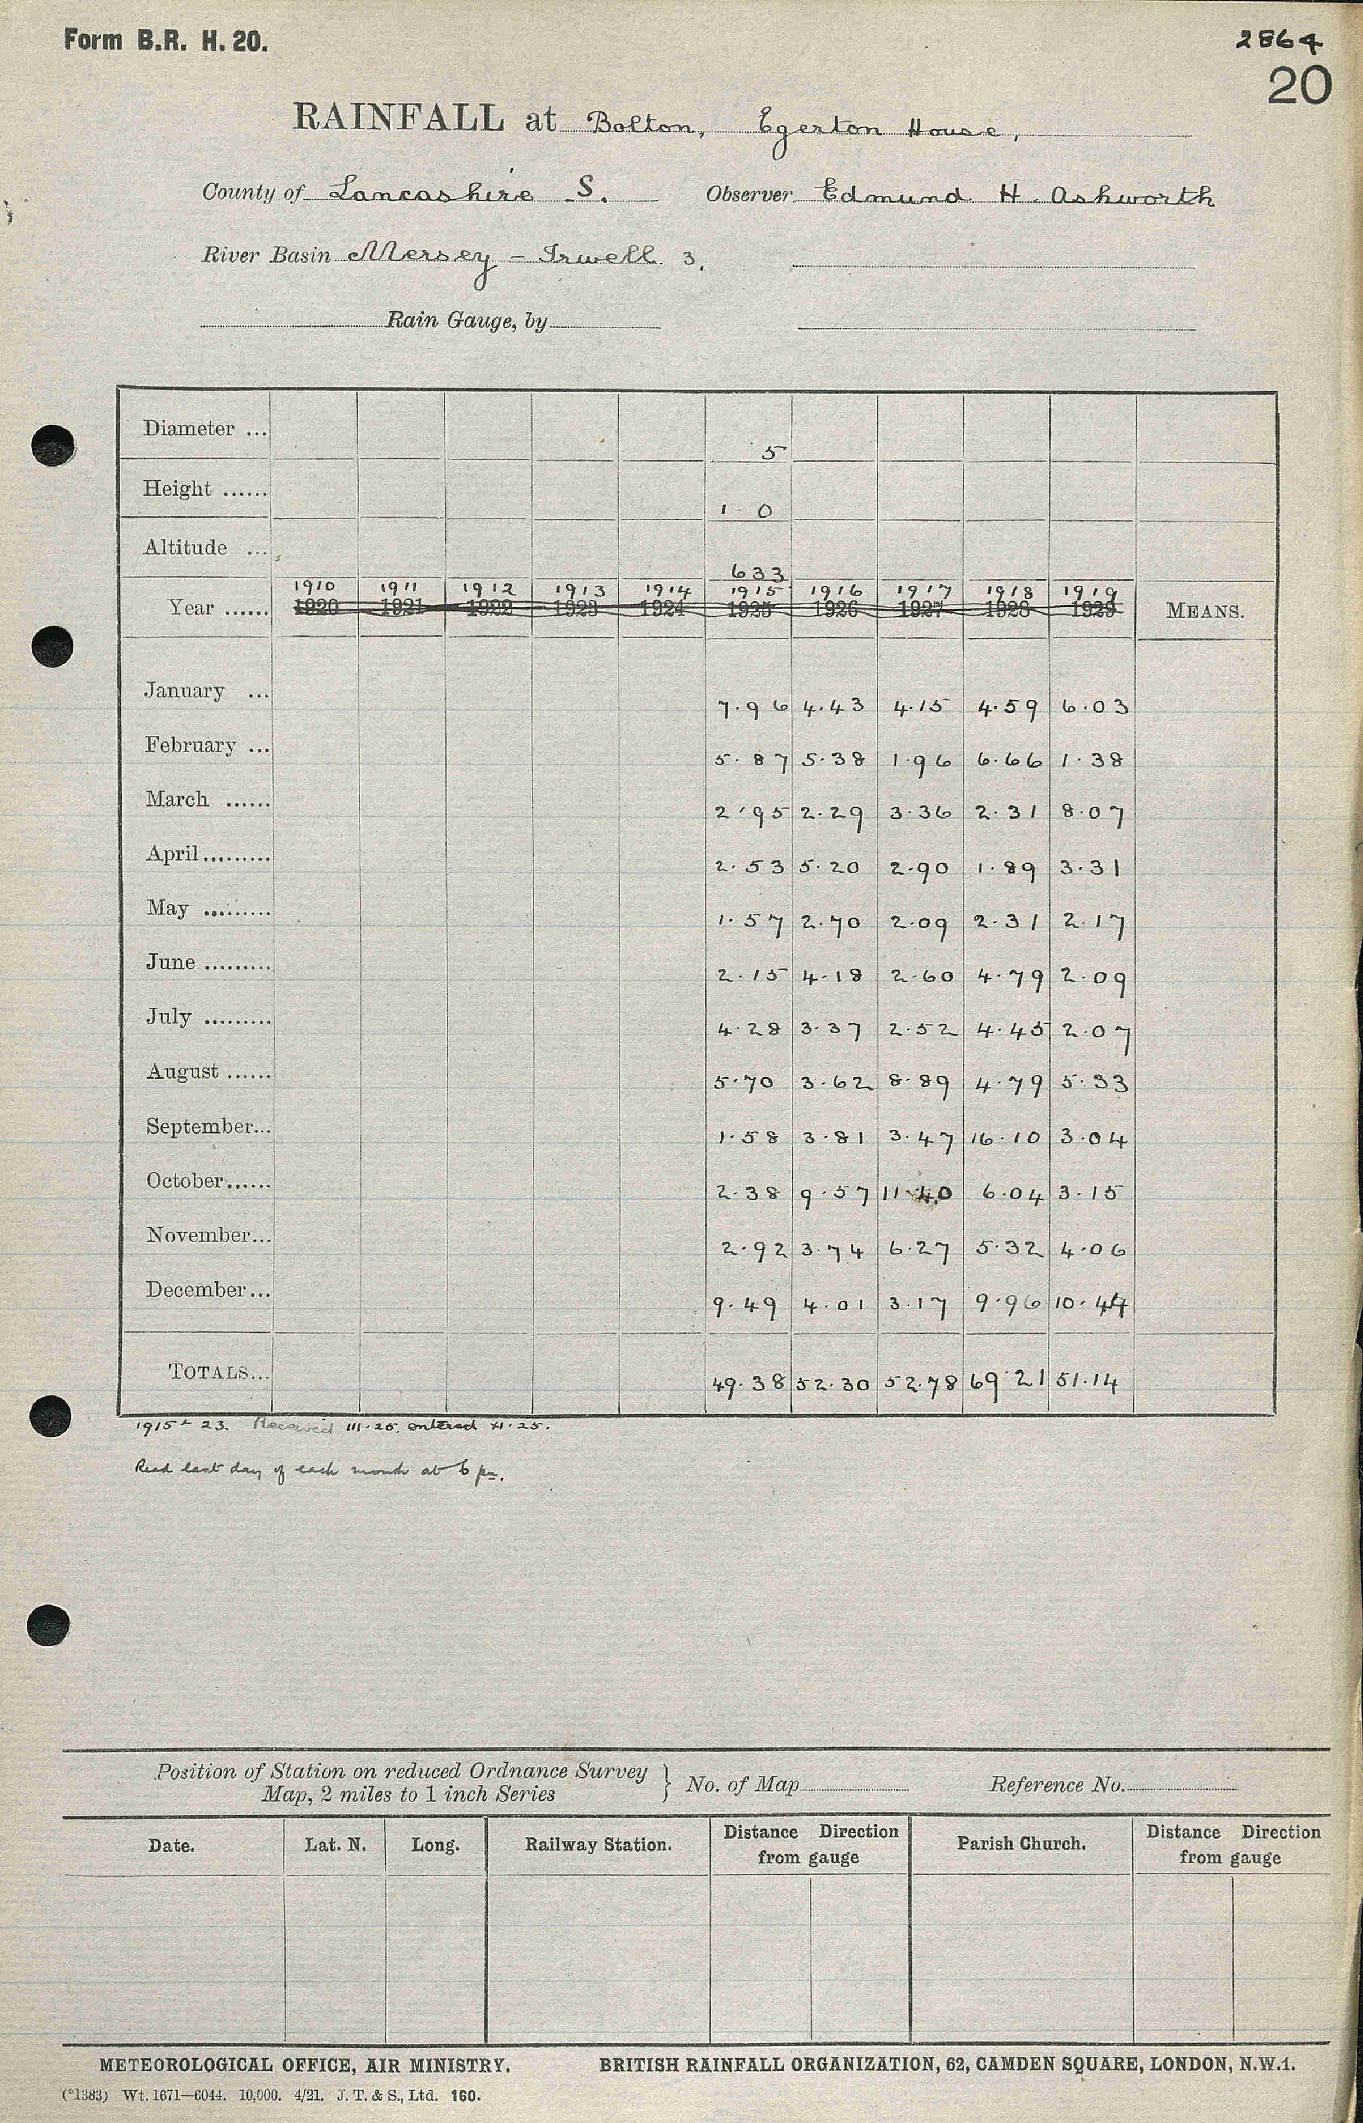 Form B.R. H. 20.
2864
20
RAINFALL at Bolton, Egerton House,
County of Lancashire S. Observer Edmund H. Ashworth
River Basin Mersey - Irwell 3.
Rain Gauge, by
Diameter ... 5
Height ...... 1 0
Altitude ... 633
1910 1911 1912 1913 1914 1915 1916 1917 1918 1919
Year ...... 1920 1921 1922 1923 1924 1925 1926 1927 1928 1929 MEANS.
January ... 7.96 4.43 4.15 4.59 6.03
February ... 5.87 5.38 1.96 6.66 1.38
March ...... 2.95 2.29 3.36 2.31 8.07
April ......... 2.53 5.20 2.90 1.89 3.31
May ......... 1.57 2.70 2.09 2.31 2.17
June ......... 2.15 4.18 2.60 4.79 2.09
July ......... 4.28 3.37 2.52 4.45 2.07
August ...... 5.70 3.62 8.89 4.79 5.33
September... 1.58 3.81 3.47 16.10 3.04
October...... 2.38 9.57 11.40 6.04 3.15
November... 2.92 3.74 6.27 5.32 4.06
December... 9.49 4.01 3.17 9.96 10.44
TOTALS... 49.38 52.30 52.78 69.21 51.14
1915-23. Received III.25. entered XI.25.
Read last day of each month at 6 pm.
Position of Station on reduced Ordnance Survey
Map, 2 miles to 1 inch Series } No. of Map Reference No.
Date. Lat. N. Long. Railway Station. Distance Direction from gauge Parish Church. Distance Direction from gauge
METEOROLOGICAL OFFICE, AIR MINISTRY. BRITISH RAINFALL ORGANIZATION, 62, CAMDEN SQUARE, LONDON, N.W.1.
(*1383) Wt. 1671—6044. 10,000. 4/21. J. T. & S., Ltd. 160.